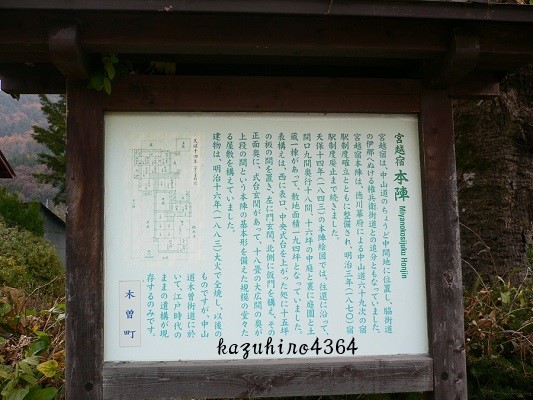 宮越宿 本陣 Miyanokosijuku Honjin
宮越宿は、中山道のちょうど中間地に位置し、脇街道
の伊那へぬける権兵衛街道との追分ともなっていました。
宮越宿本陣は、徳川幕府による中山道六十九次の宿
駅制度確立とともに整備され、明治三年(一八七〇)宿
駅制度廃止まで続きました。
天保十四年(一八四三)の本陣絵図では、往還に沿って、
間口九間奥行十八間、十八坪の中庭と裏に庭園と土
蔵一棟があって、敷地面積一九四坪となっていました。
表構えは、西に表口、中央式台を上がった処に十五坪
の板の間を置き、左に門玄関、北側に板門を構え、その
正面奥に、式台玄関があって、十八畳の大広間の奥が
上段の間という本陣の基本形を備えた規模の堂々た
る屋敷を構えていました。
建物は、明治十六年(一八八三)大火で全焼し、以後の
ものですが、中山
道木曽街道に於
いて、江戸時代の
ままの遺構が現
存するのみです。
木曽町
kazuhiro4364